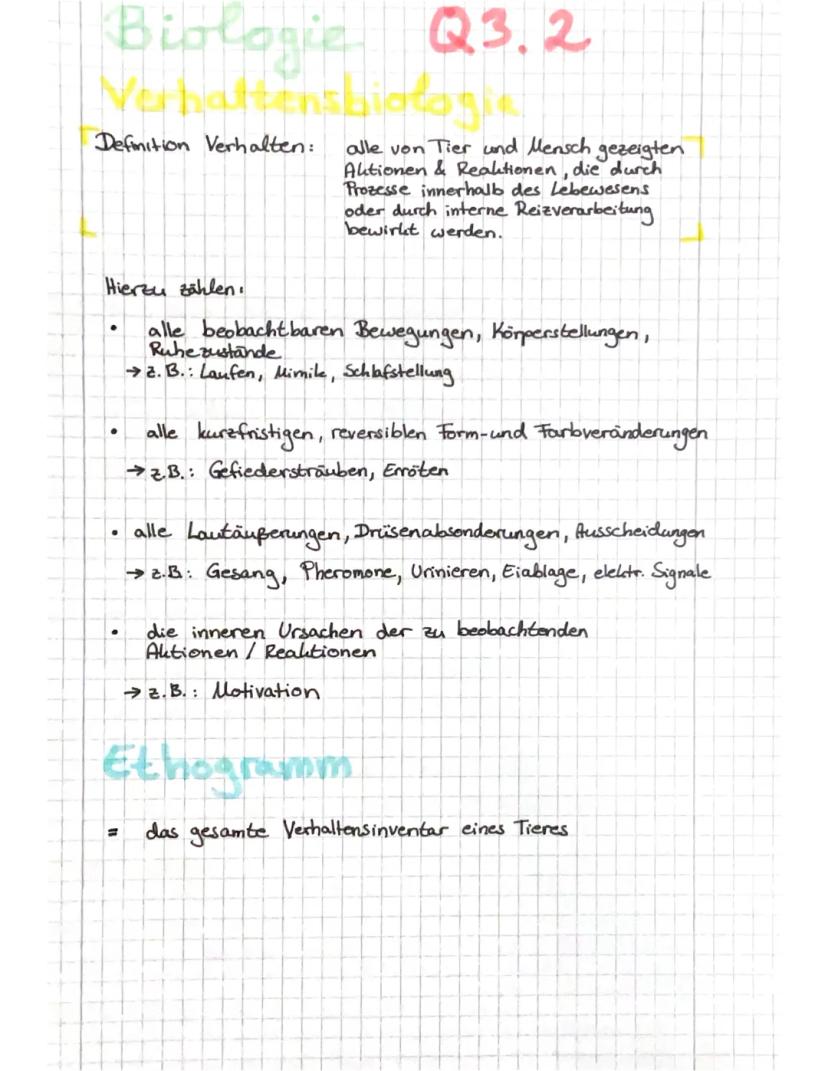 Biologie Q3.2
Verhaltensbiologie
Definition Verhalten: alle von Tier und Mensch gezeigten
Aktionen & Reaktionen, die durch
Prozesse innerhalb des Lebewesens
oder durch interne Reizverarbeitung
bewirkt werden.
Hierzu zählen:
• alle beobachtbaren Bewegungen, Körperstellungen,
Ruhezustände
→ z.B.: Laufen, Mimik, Schlafstellung
• alle kurzfristigen, reversiblen Form-und Farbveränderungen
→ z.B.: Gefiedersträuben, Erröten
• alle Lautäußerungen, Drüsenabsonderungen, Ausscheidungen
→ z.B: Gesang, Pheromone, Urinieren, Eiablage, elektr. Signale
• die inneren Ursachen der zu beobachtenden
Aktionen / Reaktionen
→ z.B.: Motivation
Ethogramm
= das gesamte Verhaltensinventar eines Tieres